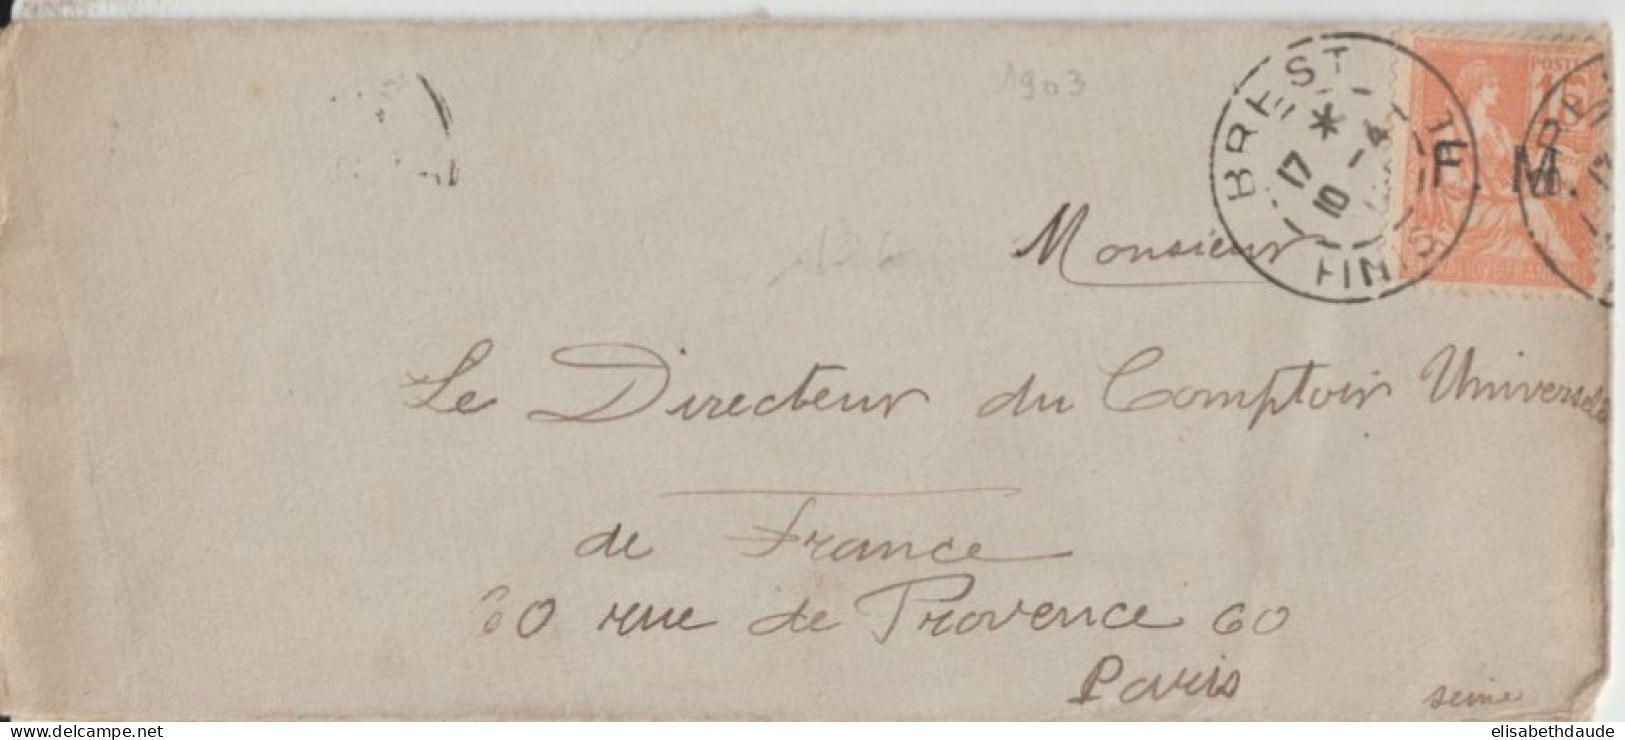 1903
BREST
FINIST
17 *
10 -4
POSTES
15
F.M.
Monsieur
Le Directeur du Comptoir Universel
de France
60 rue de Provence 60
Paris
seine
elisabethdaude